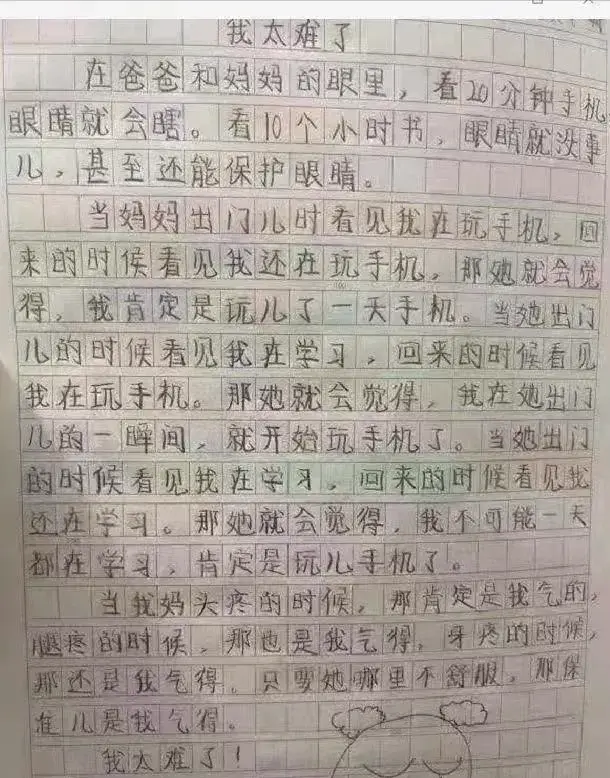 我太难了
在爸爸和妈妈的眼里，看20分钟手机
眼睛就会瞎。看10个小时书，眼睛就没事
儿，甚至还能保护眼睛。
当妈妈出门儿时看见我在玩手机，回
来的时候看见我还在玩手机，那她就会觉
得，我肯定是玩儿了一天手机。当她出门
儿的时候看见我在学习，回来的时候看见
我在玩手机。那她就会觉得，我在她出门
儿的一瞬间，就开始玩手机了。当她出门
的时候看见我在学习，回来的时候看见我
还在学习。那她就会觉得，我不可能一天
都在学习，肯定是玩儿手机了。
当我妈头疼的时候，那肯定是我气的，
腿疼的时候，那也是我气得，牙疼的时候，
那还是我气得。只要她哪里不舒服，那保
准儿是我气得。
我太难了！